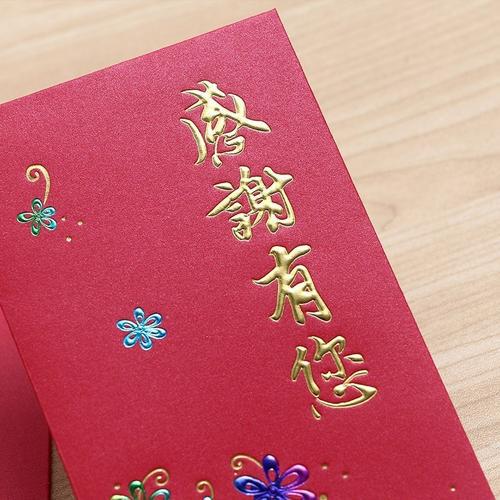 感謝有您